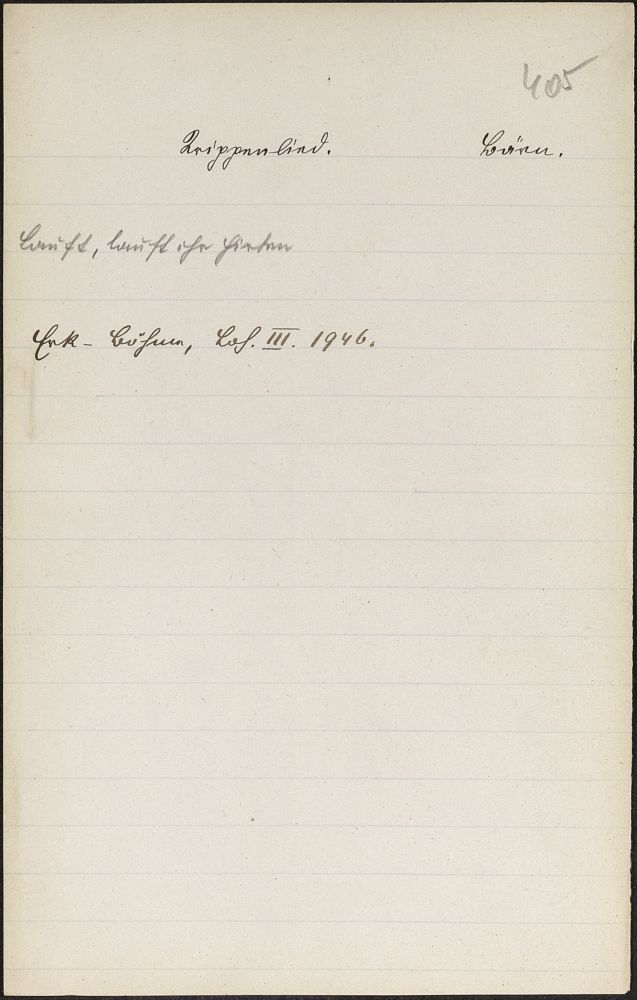 405
Krippenlied. Bärn.
Lauft, lauft ihr Hirten
Erk-Böhme, Lh. III. 1946.